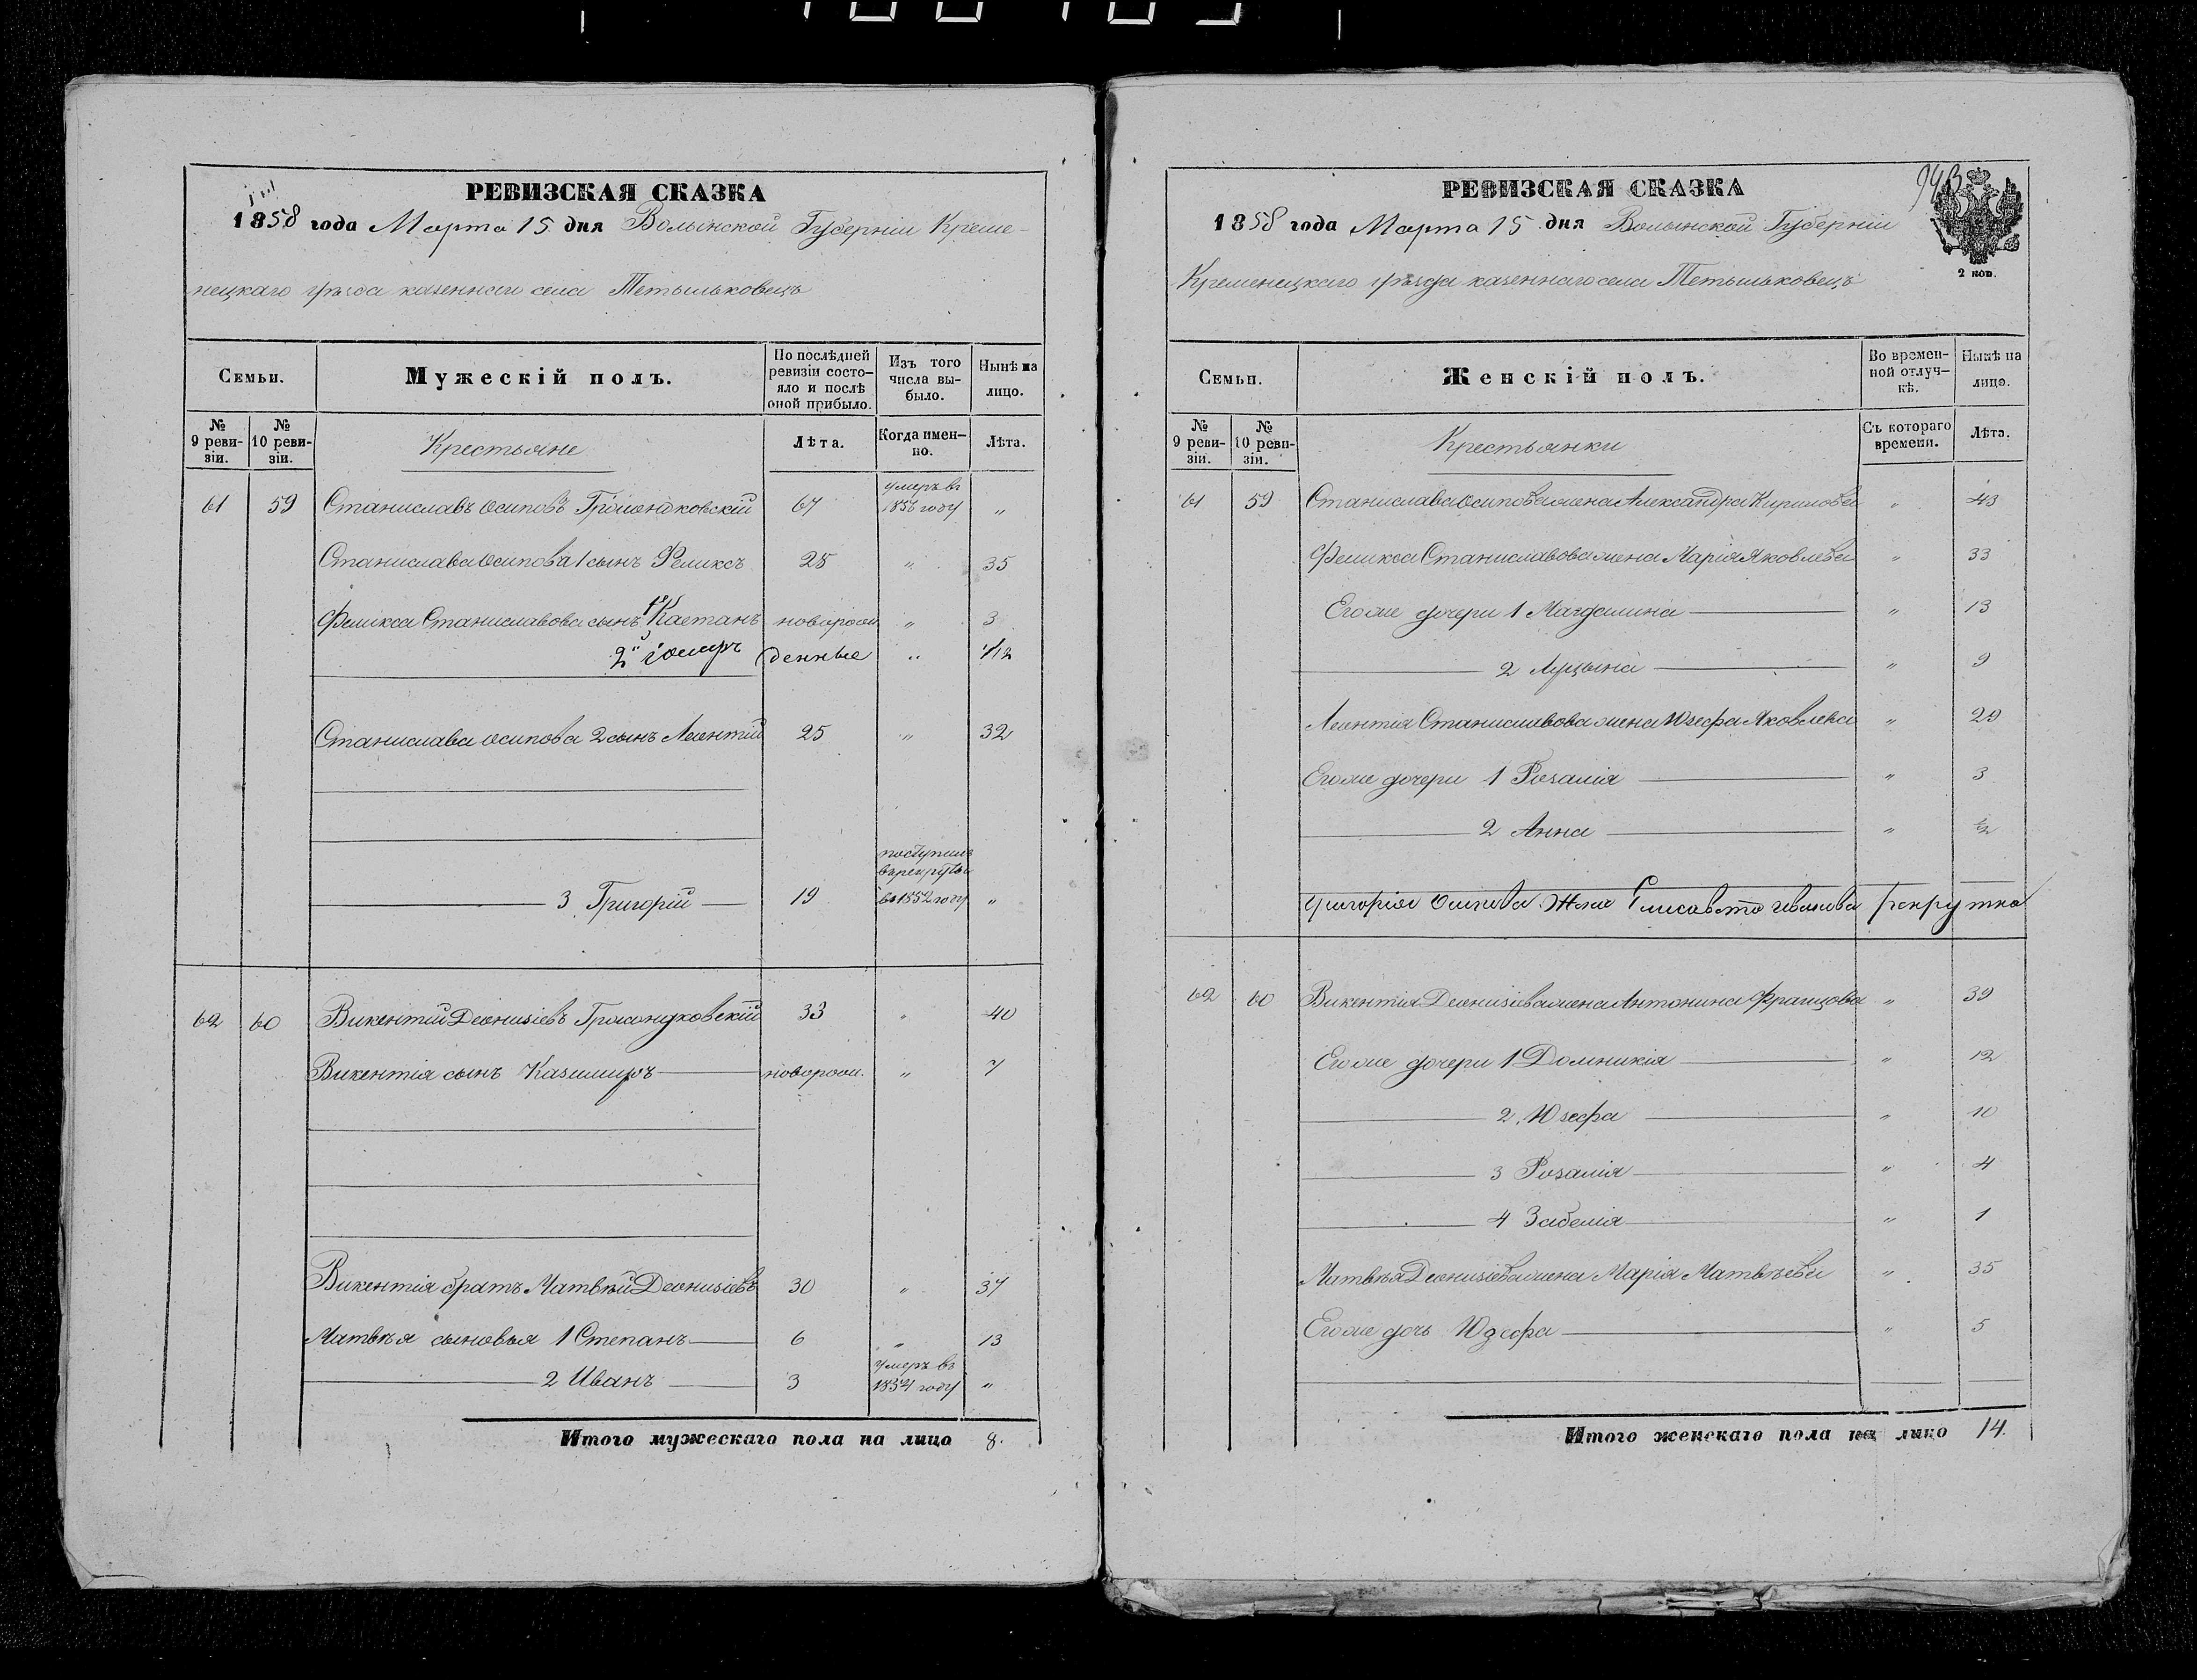 РЕВИЗСКАЯ СКАЗКА
1858 года Марта 15 дня Волынской Губерніи Креме-
нецкаго уѣзда казеннаго села Тетыльковецъ
Семьи.
Мужескій полъ.
По послѣдней ревизіи состо-яло и послѣ оной прибыло.
Изъ того числа вы-было.
Нынѣ на лицо.
№ 9 реви-зіи.
№ 10 реви-зіи.
Крестьяне
Лѣта.
Когда имен-но.
Лѣта.
61 59 Станиславъ Осиповъ 67 умеръ въ 1856 году "
Станислава Осипова 1 сынъ Феликсъ 28 " 35
Феликса Станиславова сынъ 1й Каетанъ новорож " 3
2й денные " 1/12
Станислава Осипова 2 сынъ Леонтій 25 " 32
3 Григорій 19 поступилъ въ рекруты въ 1852 году "
62 60 Викентій Деонизіевъ 33 " 40
Викентія сынъ Казимиръ новорож. " 7
Викентія братъ Матвѣй Деонизіевъ 30 " 37
Матвѣя сыновья 1 Степанъ 6 " 13
2 Иванъ 3 умеръ въ 1854 году "
Итого мужескаго пола на лицо 8.
РЕВИЗСКАЯ СКАЗКА
943
1858 года Марта 15 дня Волынской Губерніи
2 коп.
Кременецкаго уѣзда казеннаго села Тетыльковецъ
Семьи.
Женскій полъ.
Во времен-ной отлуч-кѣ.
Нынѣ на лицо.
№ 9 реви-зіи.
№ 10 реви-зіи.
Крестьянки
Съ котораго времени.
Лѣта.
61 59 Станислава Осипова жена Александра Кирилова " 43
Феликса Станиславова жена Марія Яковлева " 33
Его же дочери 1 Магдалина " 13
2 Луцына " 9
Леонтія Станиславова жена Юзефа Яковлева " 29
Его же дочери 1 Розалія " 3
2 Анна " 1/2
Григорія Осипова жена Елисавета Иванова рекрутка
62 60 Викентія Деонизіева жена Антонина Францова " 39
Его же дочери 1 Домникія " 12
2 Юзефа " 10
3 Розалія " 4
4 Забелія " 1
Матвѣя Деонизіева жена Марія Матвѣева " 35
Его же дочь Юзефа " 5
Итого женскаго пола на лицо 14.